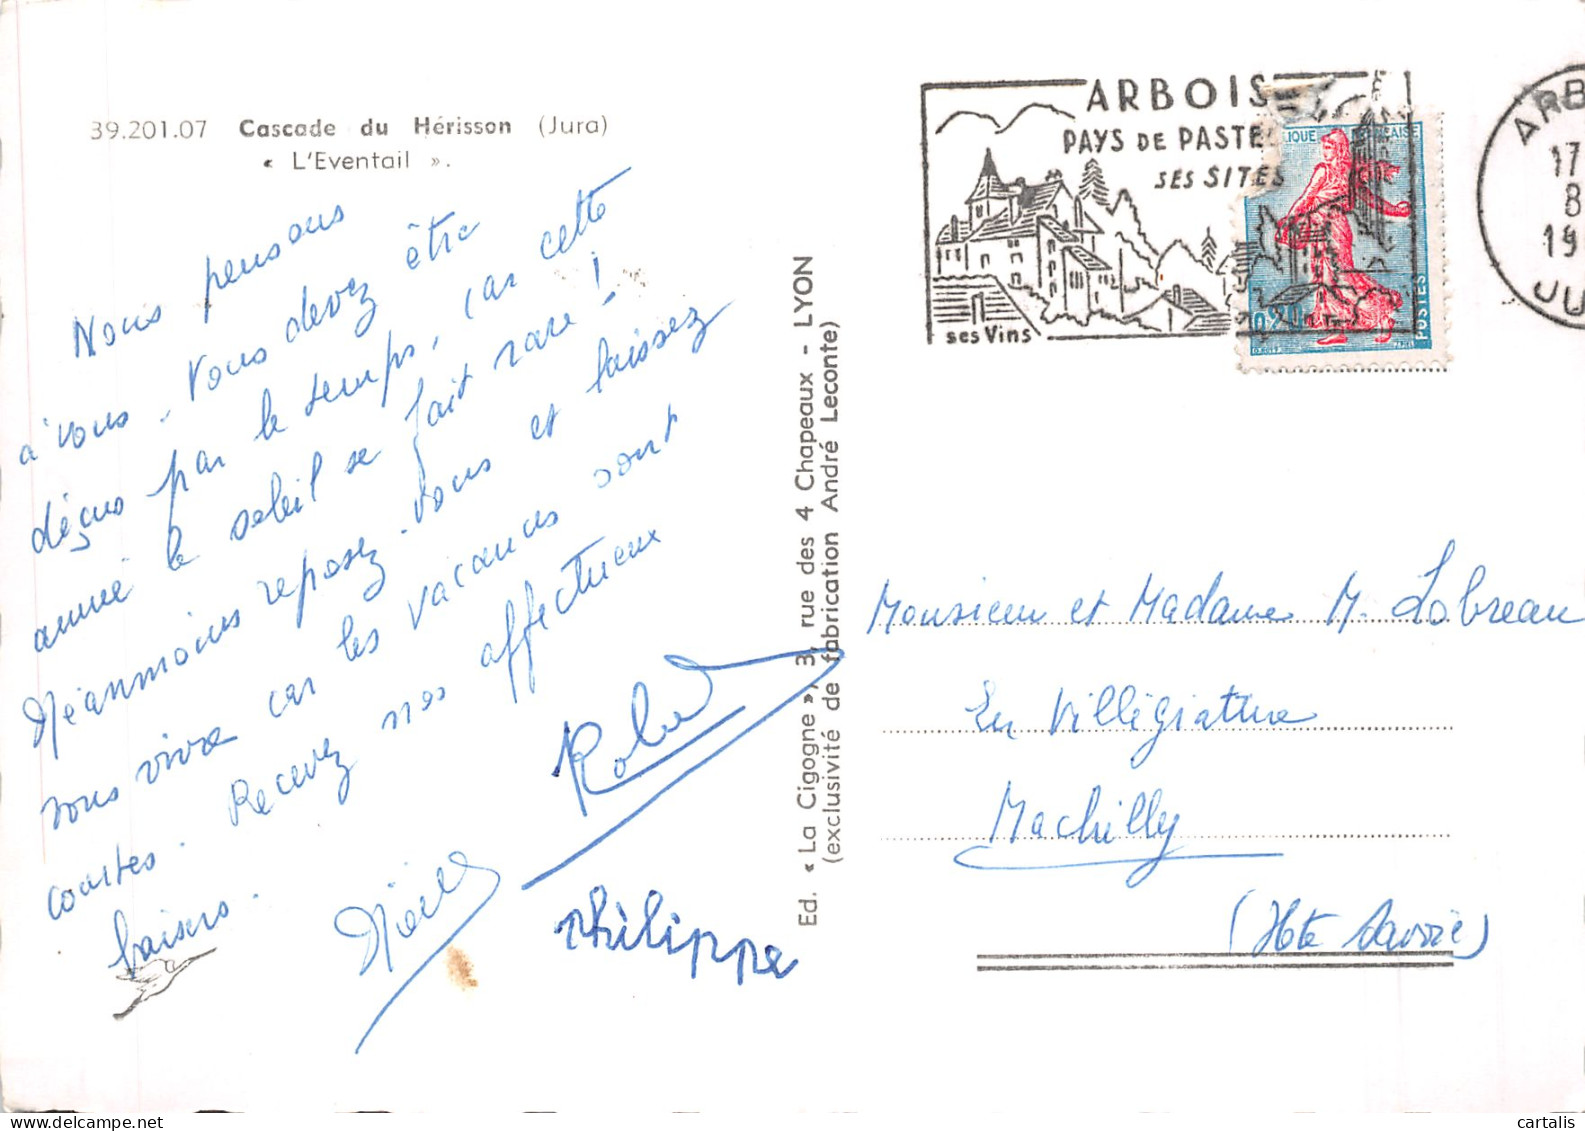 39.201.07 Cascade du Hérisson (Jura)
« L'Eventail ».
Nous pensons
à vous. Vous devez être
déçus par le temps, car cette
année le soleil se fait rare !
Néanmoins reposez-vous et laissez
vous vivre car les vacances sont
courtes. Recevez nos affectueux
baisers.
Robert
Noëlle
Philippe
Ed. « La Cigogne », 3, rue des 4 Chapeaux - LYON
(exclusivité de fabrication André Leconte)
ARBOIS
PAYS DE PASTE
SES SITES
ses Vins
LIQUE FRANÇAISE
0,20
POSTES
ARB
17
8
19
JU
Monsieur et Madame M. Lobreau
En Villégiature
Machilly
(Hte Savoie)
delcampe.net
cartalis